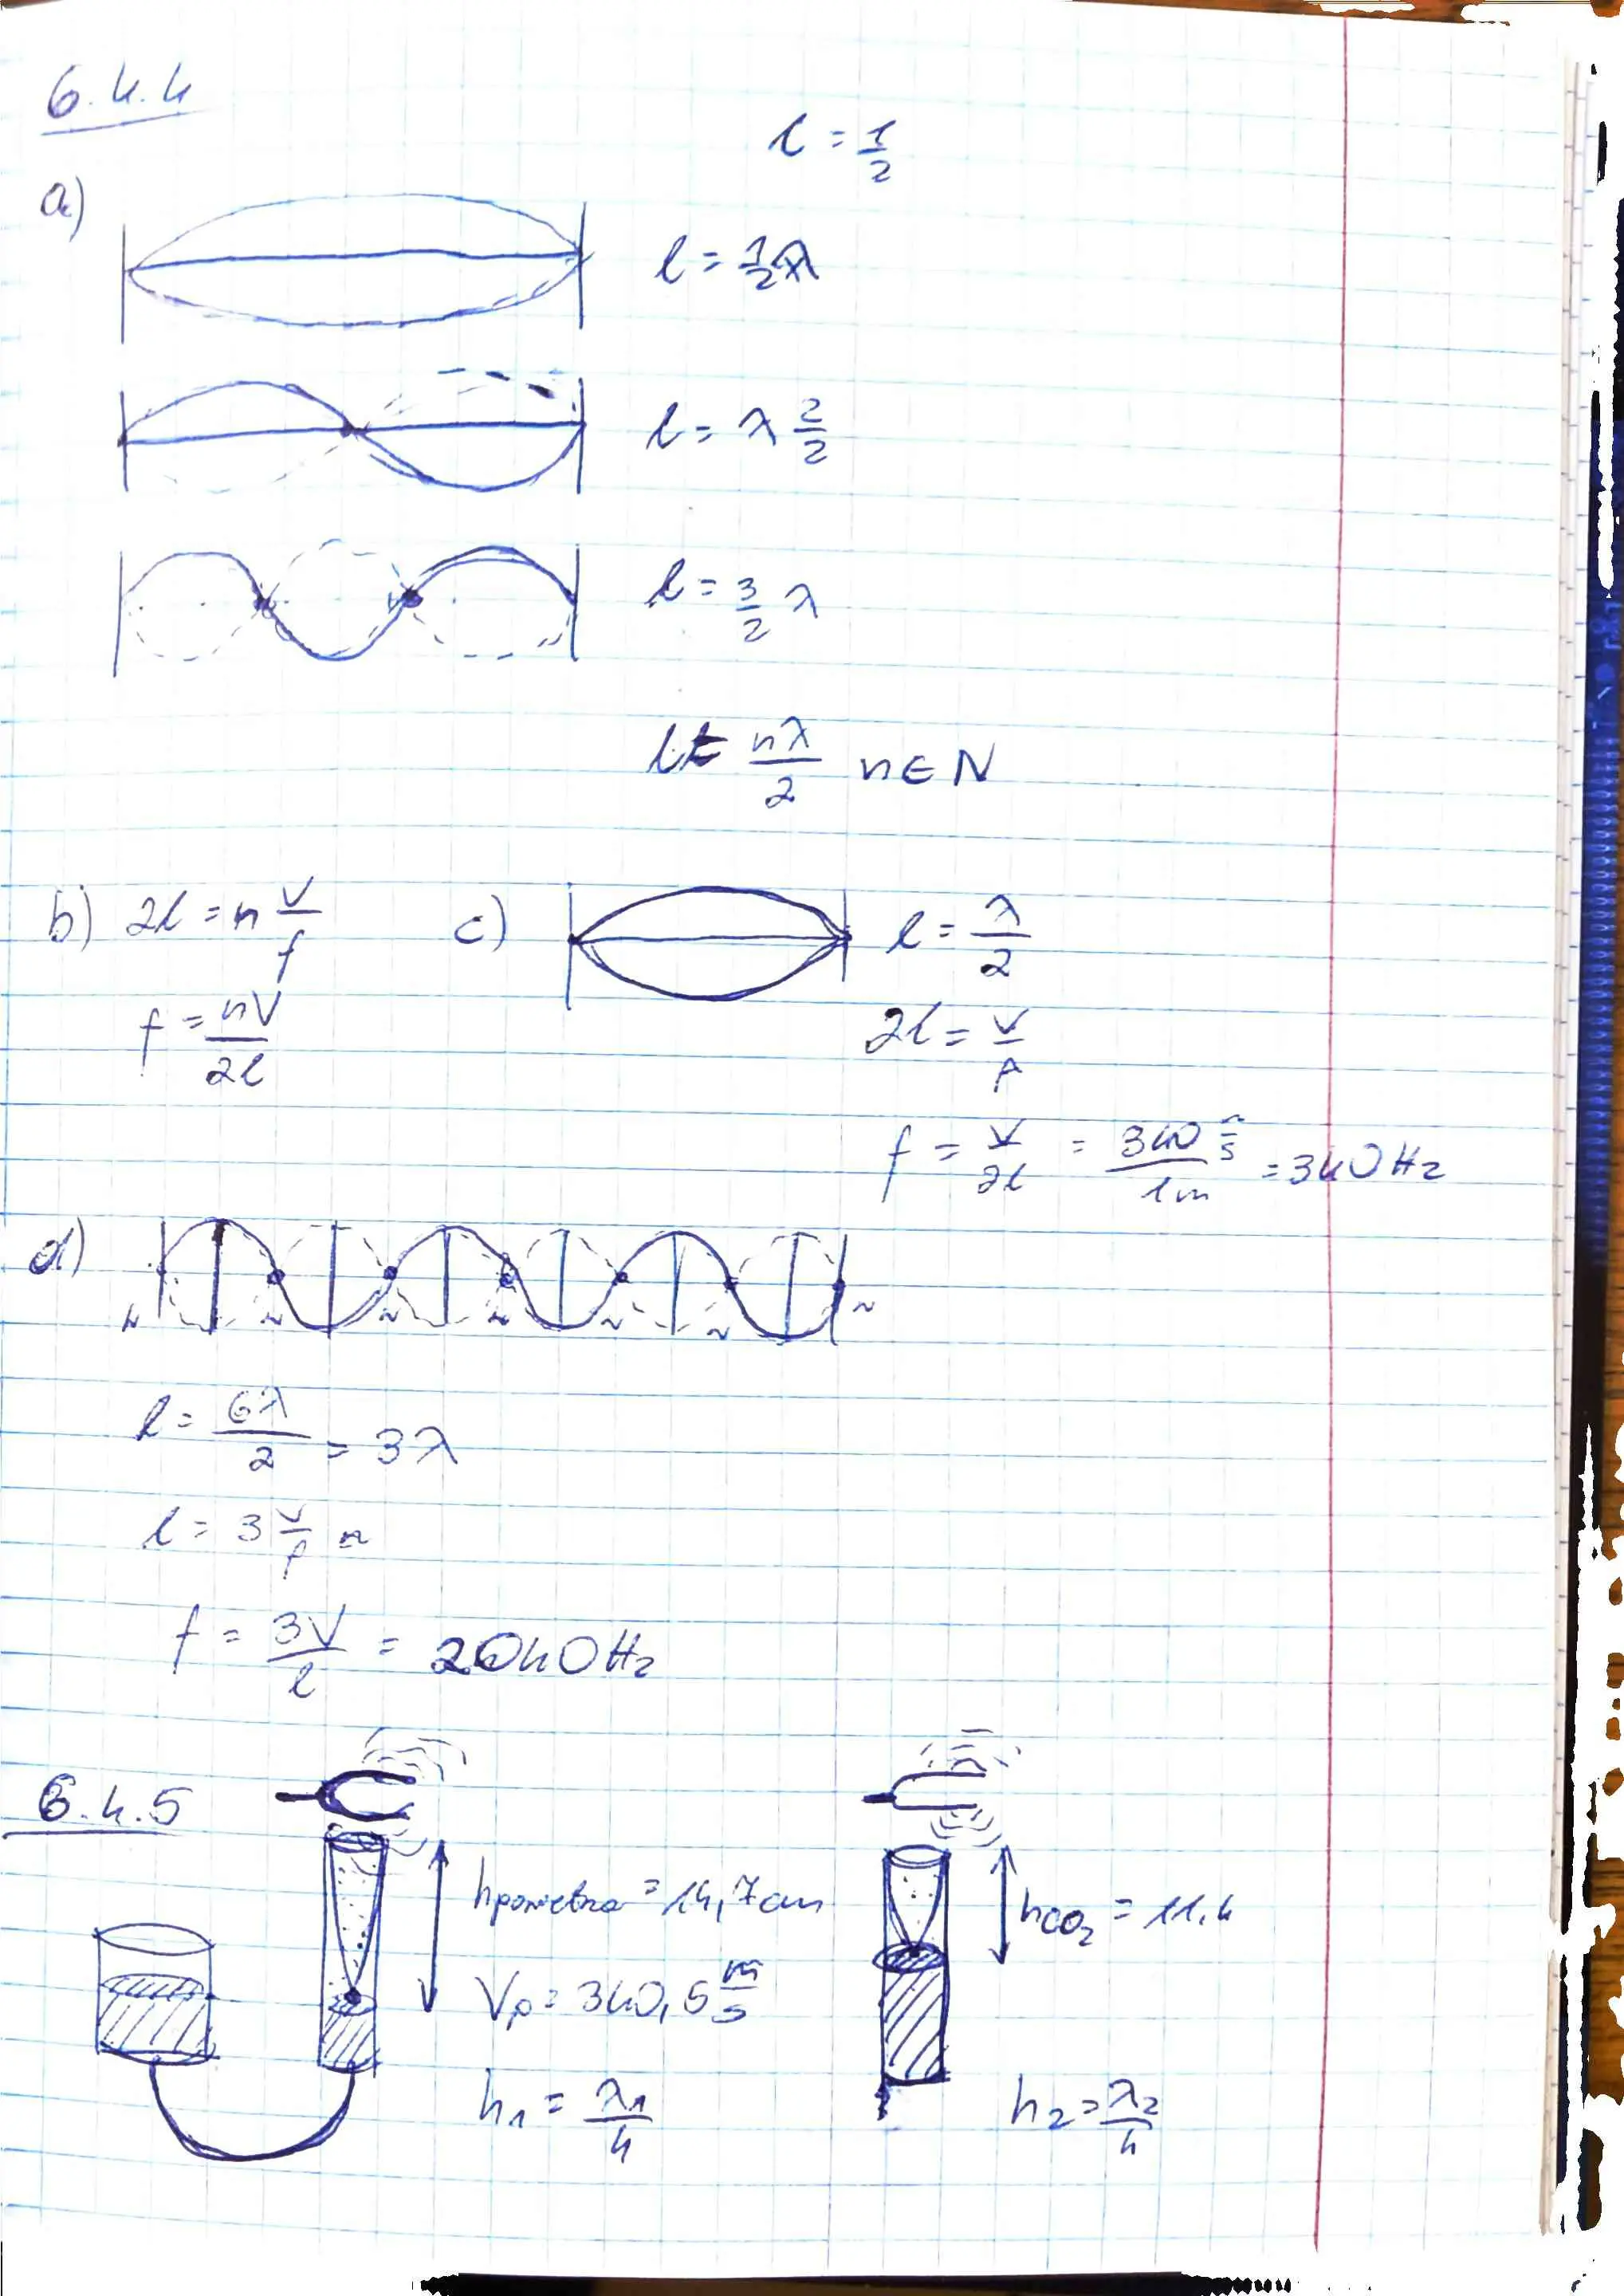 6.4.4
l = 1/2
a)
l = 1/2 λ
l = λ 2/2
l = 3/2 λ
l = nλ/2 n ∈ N
b) 2l = n v/f
f = nV/2l
c) l = λ/2
2l = v/f
f = v/2l = 340 m/s / 1m = 340 Hz
d)
N N N N N N N
l = 6λ/2 = 3λ
l = 3 v/f
f = 3V/l = 2040 Hz
6.4.5
hpowietrza = 14,7cm
hCO₂ = 11,4
Vp = 340,5 m/s
h₁ = λ₁/4
h₂ = λ₂/4